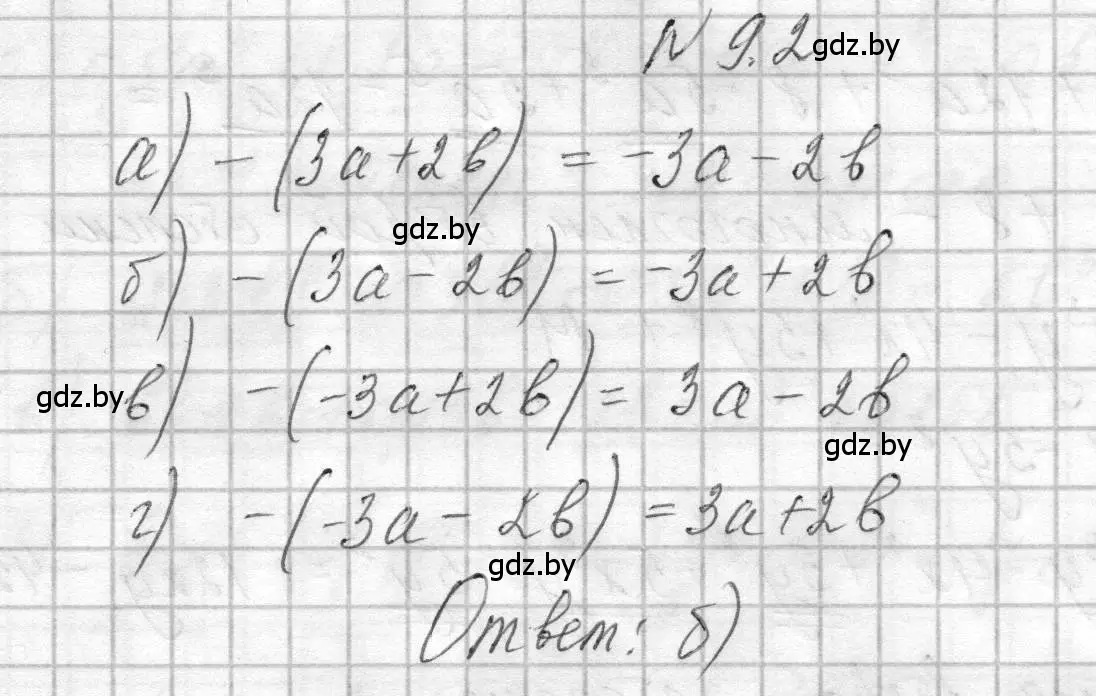 N 9.2 gdz.by
а) - (3a+2b) = -3a - 2b
gdz.by
б) - (3a - 2b) = -3a + 2b
gdz.by в) - (-3a+2b) = 3a - 2b
gdz.by
г) - (-3a - 2b) = 3a+2b
gdz.by
Ответ: б)